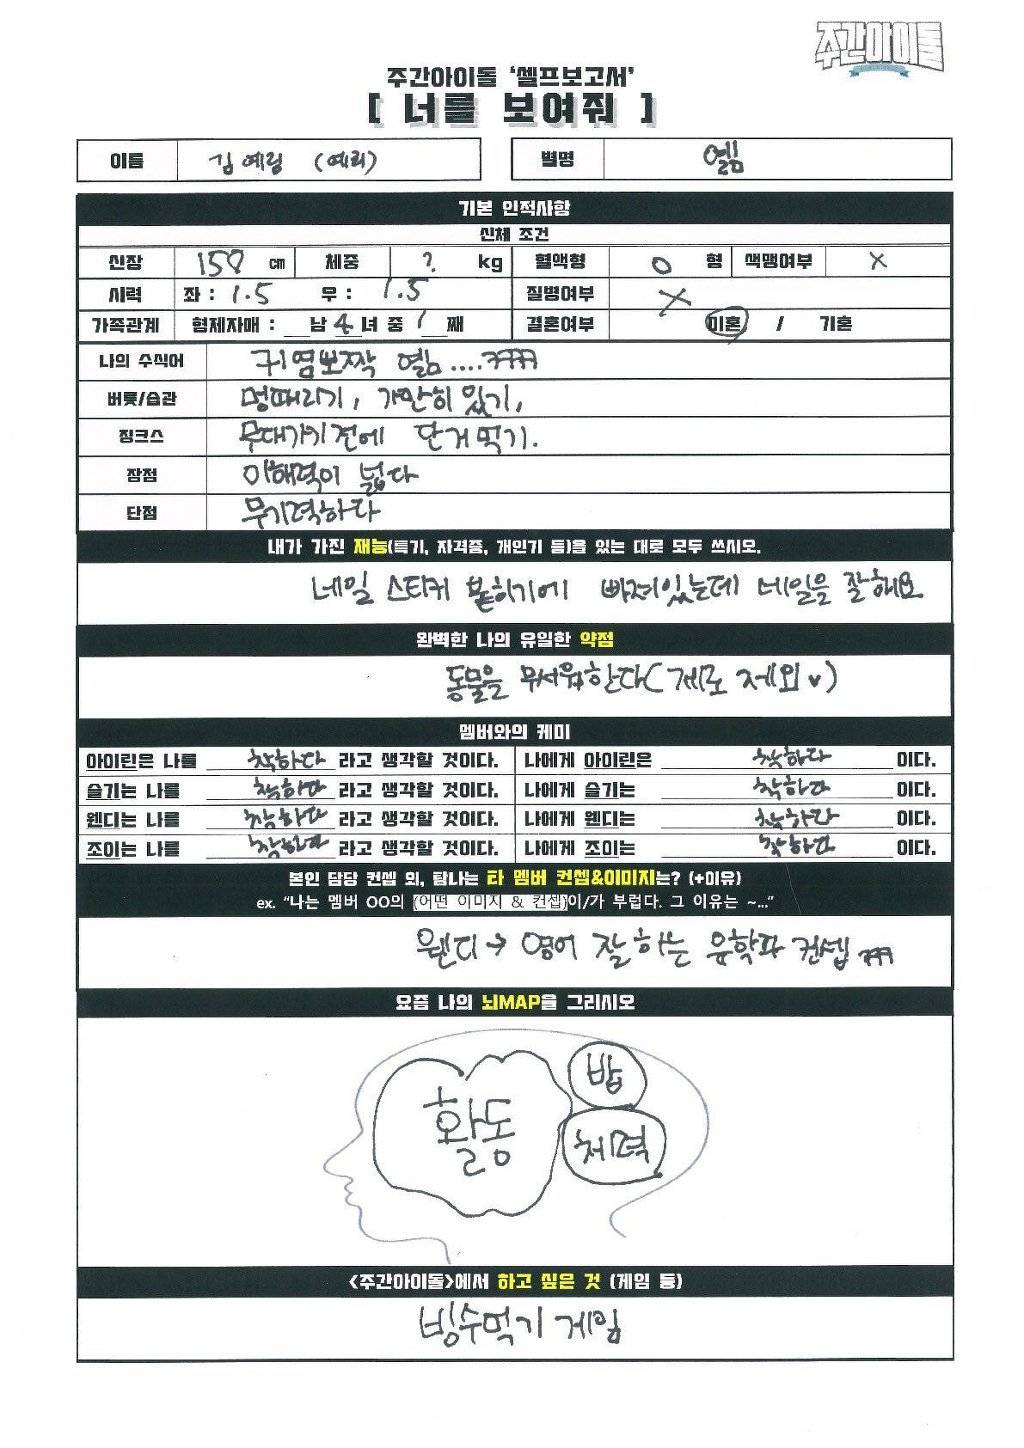 주간아이돌
주간아이돌 '셀프보고서'
[ 너를 보여줘 ]
이름 김예림 (예리) 별명 옐림
기본 인적사항
신체 조건
신장 158 cm 체중 ? kg 혈액형 O 형 색맹여부 X
시력 좌 : 1.5 우 : 1.5 질병여부 X
가족관계 형제자매 : __남 4 녀 중 1 째 결혼여부 미혼 / 기혼
나의 수식어 귀염뽀짝 옐림....ㅋㅋㅋㅋ
버릇/습관 멍때리기, 가만히 있기,
징크스 무대가기 전에 단거 먹기.
장점 이해력이 넓다
단점 무기력하다
내가 가진 재능(특기, 자격증, 개인기 등)을 있는 대로 모두 쓰시오.
네일 스티커 붙히기에 빠져있는데 네일을 잘해요
완벽한 나의 유일한 약점
동물을 무서워한다( 제로 제외 ♥)
멤버와의 케미
아이린은 나를 착하다 라고 생각할 것이다. 나에게 아이린은 착하다 이다.
슬기는 나를 착하다 라고 생각할 것이다. 나에게 슬기는 착하다 이다.
웬디는 나를 착하다 라고 생각할 것이다. 나에게 웬디는 착하다 이다.
조이는 나를 착하다 라고 생각할 것이다. 나에게 조이는 착하다 이다.
본인 담당 컨셉 외, 탐나는 타 멤버 컨셉&이미지는? (+이유)
ex. "나는 멤버 OO의 (어떤 이미지 & 컨셉)이/가 부럽다. 그 이유는 ~..."
웬디 → 영어 잘 하는 유학파 컨셉 ㅋㅋㅋ
요즘 나의 뇌MAP을 그리시오
밥
활동
체력
<주간아이돌>에서 하고 싶은 것 (게임 등)
빙수먹기 게임